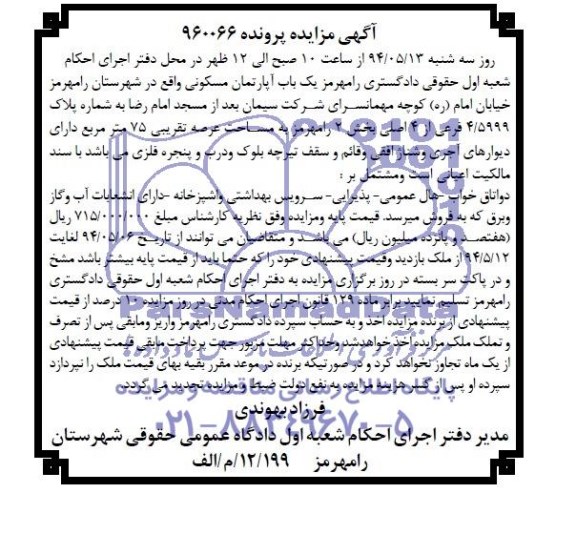 آگهی مزایده پرونده ۹۶۰۰۶۶
روز سه شنبه ۹۴/۰۵/۱۳ از ساعت ۱۰ صبح الی ۱۲ ظهر در محل دفتر اجرای احکام
شعبه اول حقوقی دادگستری رامهرمز یک باب آپارتمان مسکونی واقع در شهرستان رامهرمز
خیابان امام (ره) کوچه مهمانسرای شرکت سیمان بعد از مسجد امام رضا به شماره پلاک
۴/۵۹۹۹ فرعی از ۴ اصلی بخش ۲ رامهرمز به مساحت عرصه تقریبی ۷۵ متر مربع دارای
دیوارهای آجری وشناژ افقی وقائم و سقف تیرچه بلوک ودرب و پنجره فلزی می باشد با سند
مالکیت اعیانی است ومشتمل بر :
دواتاق خواب -هال عمومی- پذیرایی- سرویس بهداشتی واشپزخانه -دارای انشعابات آب وگاز
وبرق که به فروش میرسد. قیمت پایه ومزایده وفق نظریه کارشناس مبلغ ۷۱۵/۰۰۰/۰۰۰ ریال
(هفتصد و پانزده میلیون ریال) می باشد و متقاضیان می توانند از تاریخ ۹۴/۰۵/۰۶ لغایت
۹۴/۵/۱۲ از ملک بازدید وقیمت پیشنهادی خود را که حتما باید از قیمت پایه بیشتر باشد مشخ
و در پاکت سر بسته در روز برگزاری مزایده به دفتر اجرای احکام شعبه اول حقوقی دادگستری
رامهرمز تسلیم نمایید برابر ماده ۱۲۹ قانون اجرای احکام مدنی در روز مزایده ۱۰ درصد از قیمت
پیشنهادی از برنده مزایده اخذ و به حساب سپرده دادگستری رامهرمز واریز ومابقی پس از تصرف
و تملک ملک مزایده آخذ خواهدشد وحداکثر مهلت مزبور جهت پرداخت مابقی قیمت پیشنهادی
از یک ماه تجاوز نخواهد کرد و در صورتیکه برنده در موعد مقرر بقیه بهای قیمت ملک را نپردازد
سپرده او پس از کسر هزینه مزایده به نفع دولت ضبط و مزایده تجدید می گردد.
فرزاد بهوندی
مدیر دفتر اجرای احکام شعبه اول دادگاه عمومی حقوقی شهرستان
رامهرمز ۱۲/۱۹۹/م/الف
ParsNamadData
پایگاه اطلاع رسانی مناقصه و مزایده
۰۲۱-۸۸۳۴۹۶۷۰-۵